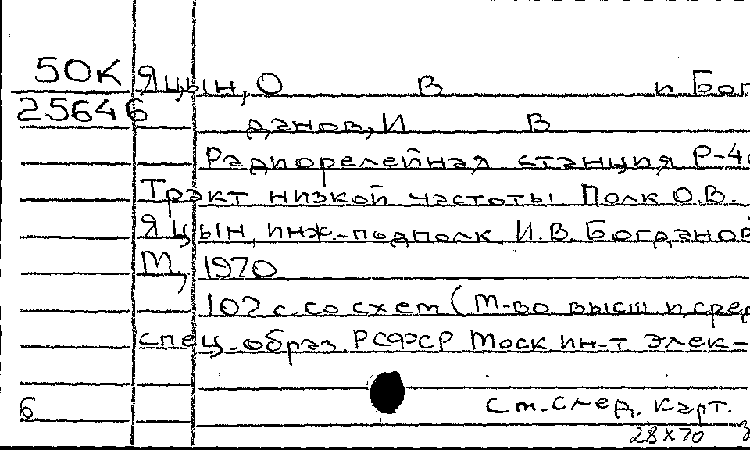 50К Яцын, О В и Бог
25646
данов, И В
Радиорелейная станция Р-40
Тракт низкой частоты Полк О.В.
Яцын, инж.-подполк И.В. Богданов
М, 1970
102 с. со схем (М-во высш и сред
спец. образ. РСФСР Моск ин-т элек-
6 См. след. карт.
28х70